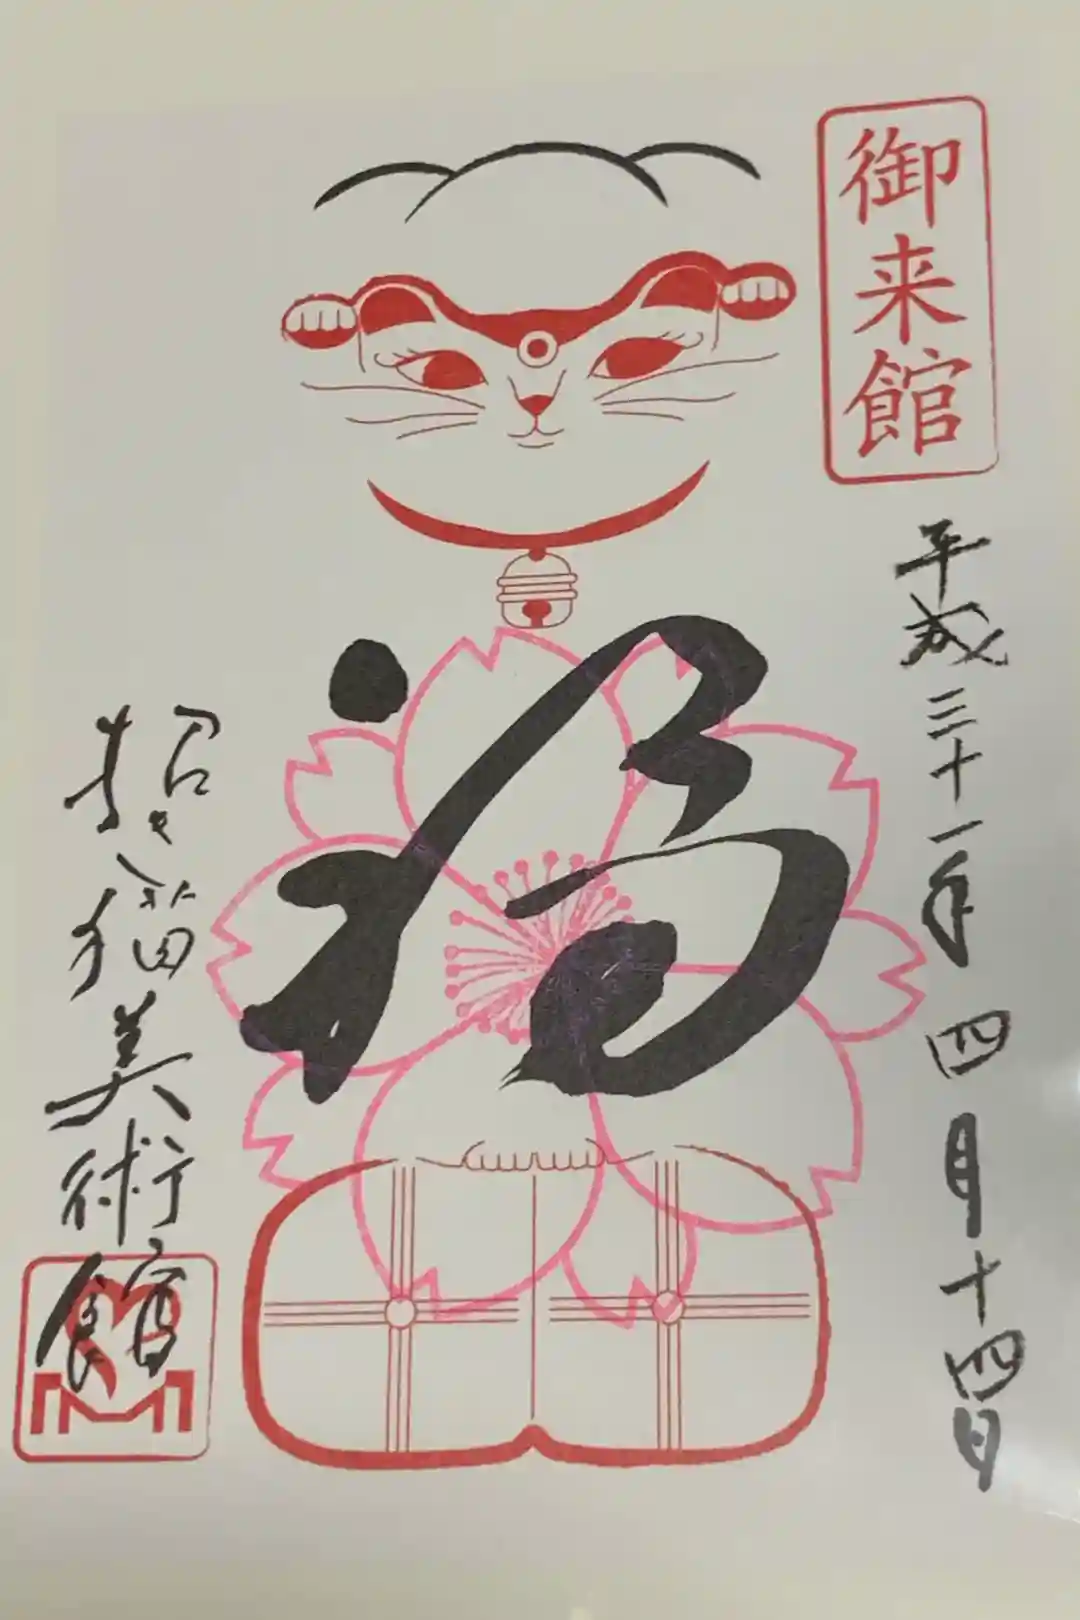 御来館
平成三十一年四月十四日
福
招き猫美術館